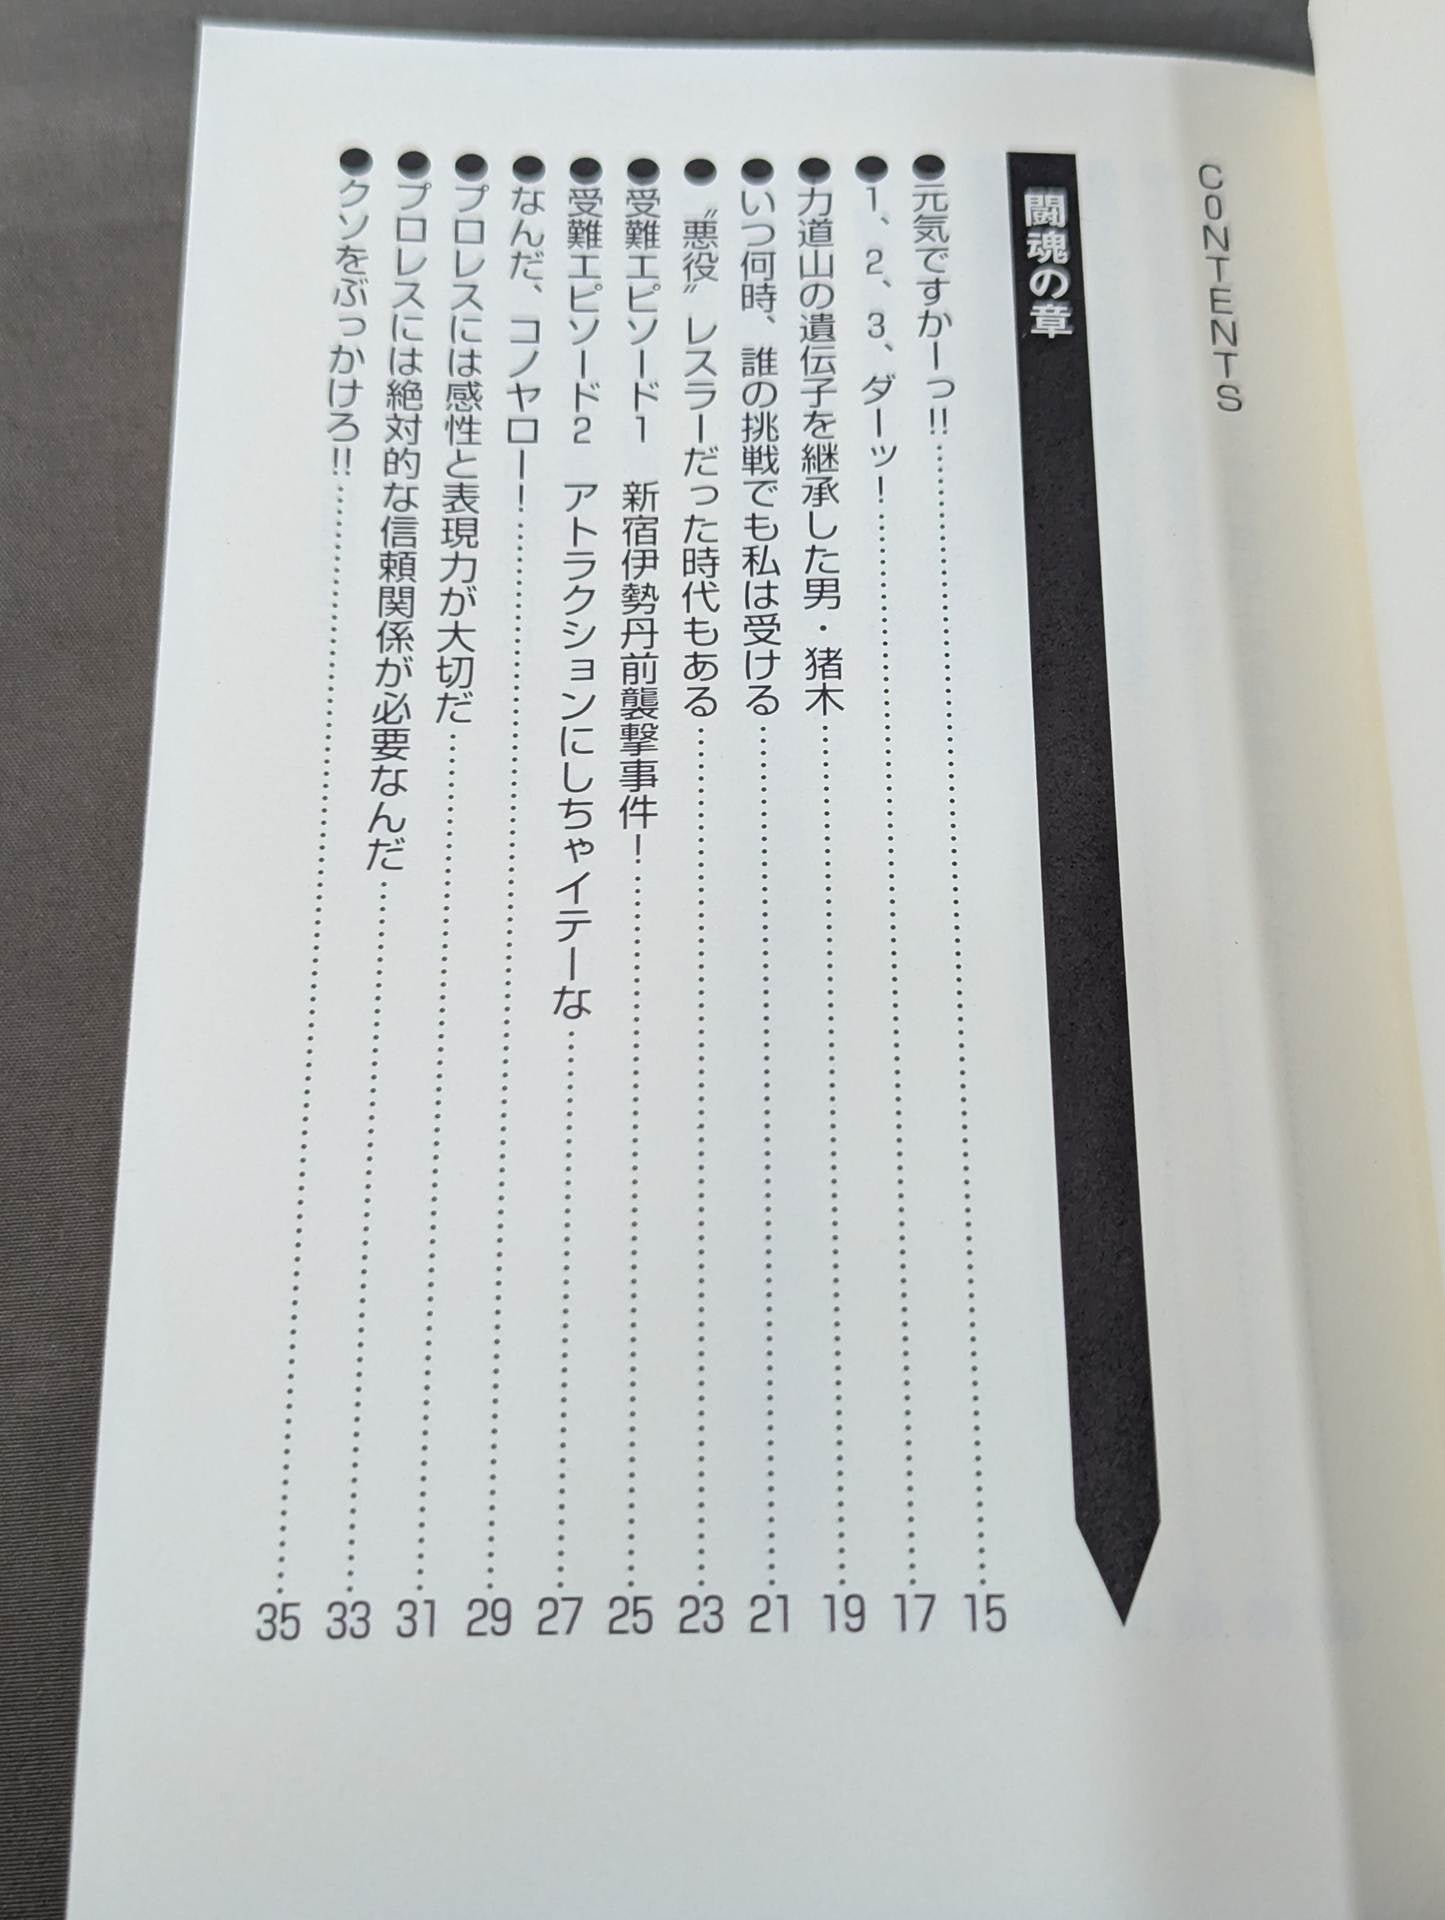 CONTENTS
闘魂の章
●元気ですかーっ!!……15
●1、2、3、ダーッ!……17
●力道山の遺伝子を継承した男・猪木……19
●いつ何時、誰の挑戦でも私は受ける……21
●〝悪役〟レスラーだった時代もある……23
●受難エピソード1 新宿伊勢丹前襲撃事件!……25
●受難エピソード2 アトラクションにしちゃイテーな……27
●なんだ、コノヤロー!……29
●プロレスには感性と表現力が大切だ……31
●プロレスには絶対的な信頼関係が必要なんだ……33
●クソをぶっかけろ!!……35